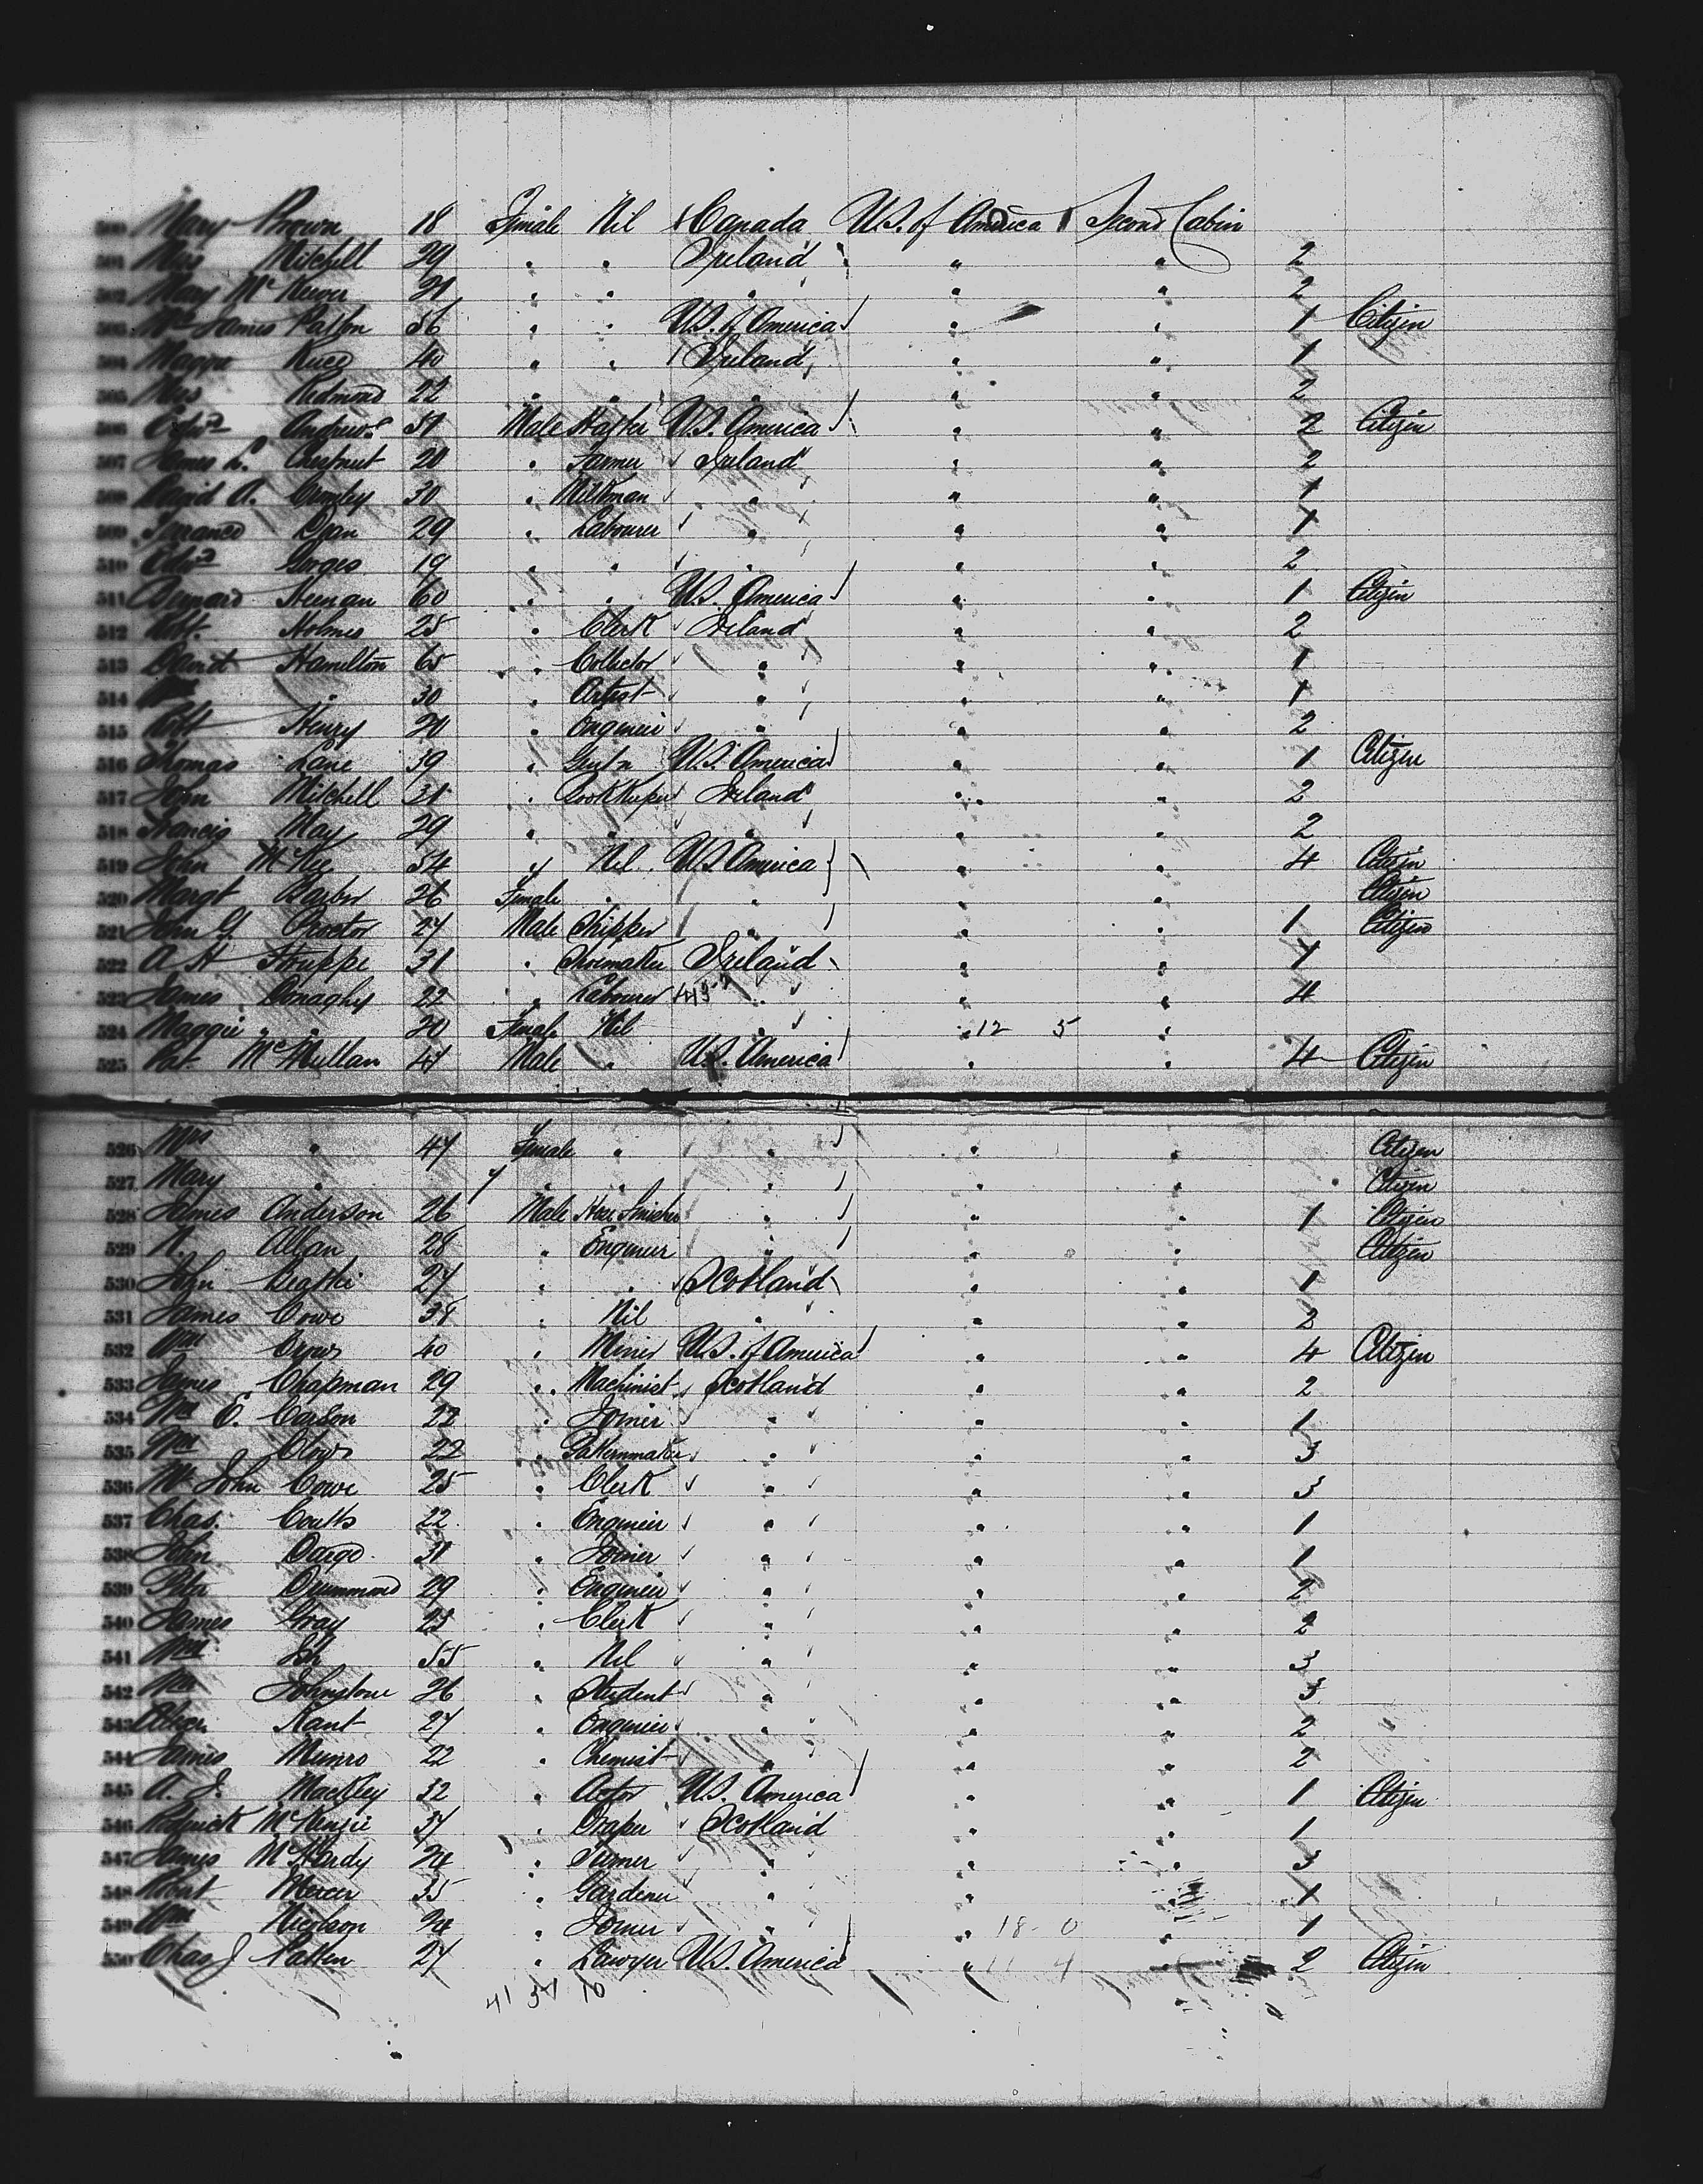 500 Mary Brown 18 Female Nil Canada U.S. of America Second Cabin
501 Mrs Mitchell 29 " " Ireland " " 2
502 Mary Mc 21 " " " " " 2
503 Mrs James Patton 56 " " U.S. of America " " 1 Citizen
504 Maggie 40 " " Ireland " " 1
505 Mrs Redmond 22 " " " " " 2
506 Edwd Andrews 57 Male U.S. America " " 2 Citizen
507 James L. Chestnut 20 " Farmer Ireland " " 2
508 David A. 30 " Milkman " " " 1
509 29 " Labourer " " " 1
510 Edwd Gorges 19 " " " " " 2
511 Bernard Heenan 60 " " U.S. America " " 1 Citizen
512 Robt. Holmes 25 " Clerk Ireland " " 2
513 David Hamilton 65 " Collector " " " 1
514 Wm " 30 " Artist " " " 1
515 Robt Henry 20 " Engineer " " " 2
516 Thomas Lane 39 " Gentn U.S. America " " 1 Citizen
517 John Mitchell 31 " Bookkeeper Ireland " " 2
518 Francis May 29 " " " " " 2
519 John McKee 54 " Nil. U.S. America " " 4 Citizen
520 Margt Barber 26 Female " " " " Citizen
521 John G. Proctor 27 Male Shipper " " " 1 Citizen
522 A H Struppe 31 " Shoemaker Ireland " "
523 James Donaghy 22 " Labourer " " " 4
524 Maggie " 20 Female Nil " " 12 5 "
525 Pat. McMullan 47 Male " U.S. America " " 4 Citizen
526 Mrs " 47 Female " " " " Citizen
527 Mary " 7 " " " " " Citizen
528 James Anderson 26 Male " " " 1 Citizen
529 Allan 28 " Engineer " " " Citizen
530 John Beattie 27 " " Scotland " " 1
531 James Cowe 38 " Nil " " " 2
532 Wm 40 " Miner U.S. of America " " 4 Citizen
533 James Chapman 29 " Machinist Scotland " " 2
534 Wm O. Carson 22 " Joiner " " " 1
535 Wm Clows 22 " Patternmaker " " " 3
536 Mr John Cowe 25 " Clerk " " " 3
537 Chas. Coutts 22 " Engineer " " " 1
538 John Dargo 31 " Joiner " " " 1
539 Peter Drummond 29 " Engineer " " " 2
540 James Gray 25 " Clerk " " " 2
541 Wm 55 " Nil " " " 3
542 Wm Johnstone 26 " Student " " " 3
543 Kant 27 " Engineer " " " 2
544 James Munro 22 " Chemist " " " 2
545 A. J. Mackley 32 " Actor U.S. America " " 1 Citizen
546 Roderick McKenzie 37 " Draper Scotland " " 1
547 James McHardy 24 " Turner " " " 3
548 Robert Mercer 35 " Gardener " " " 1
549 Wm Nicolson 24 " Joiner " " 18-0 " 1
550 Chas J Patten 27 " Lawyer U.S. America " 11 4 " 2 Citizen
41 10